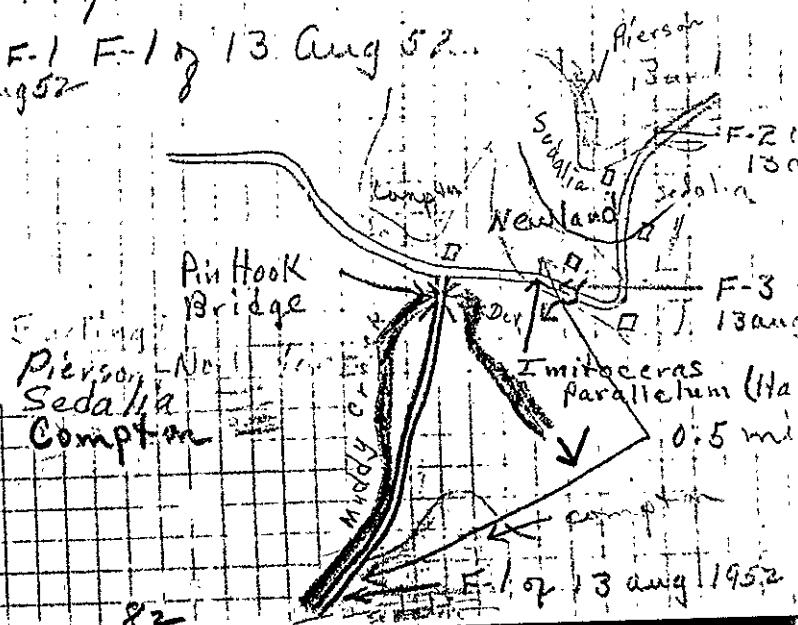 F-1 F-1 of 13 Aug 52
Aug 52
Pierson
13 au
Sedalia
F-2
13 a
Sedalia
Compton
Newland
Pin Hook
Bridge
F-3
13 aug
Pierson - No
Sedalia
Compton
Muddy Cr
Imitoceras
parallelum (Ha
0.5 mi
compton
F-1 of 13 aug 1952
82